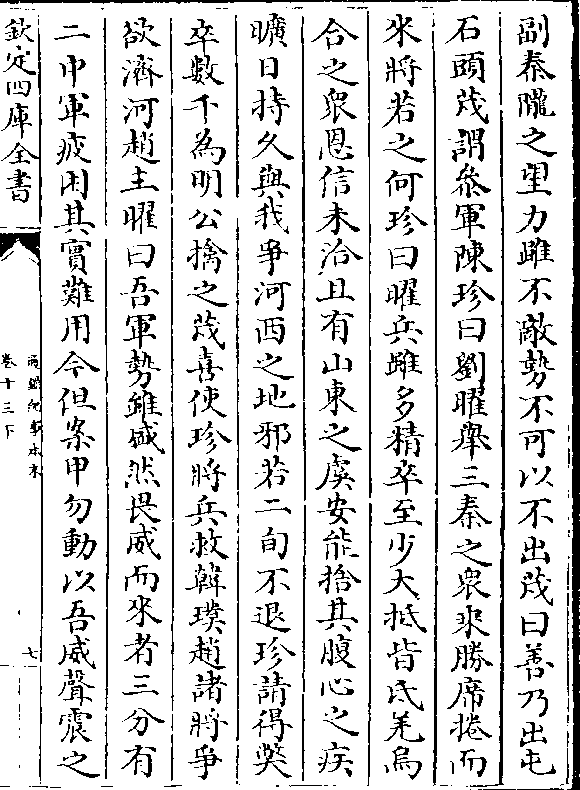 副秦隴之望力雖不敵勢不可以不出茂曰善乃出屯
石頭茂謂叅軍陳珍曰劉曜舉三秦之衆乗勝席捲而
來將若之何珍曰曜兵雖多精卒至少大抵皆氐羌烏
合之衆恩信未洽且有山東之虞安能捨其腹心之疾
曠日持久與我爭河西之地邪若二旬不退珍請得獘
卒數千為明公擒之茂喜使珍將兵救韓璞趙諸將爭
欲濟河趙主曜曰吾軍勢雖盛然畏威而來者三分有
二中軍疲困其實難用今但案甲勿動以吾威聲震之
欽定四庫全書
通鑑紀事本末
卷十三下
七